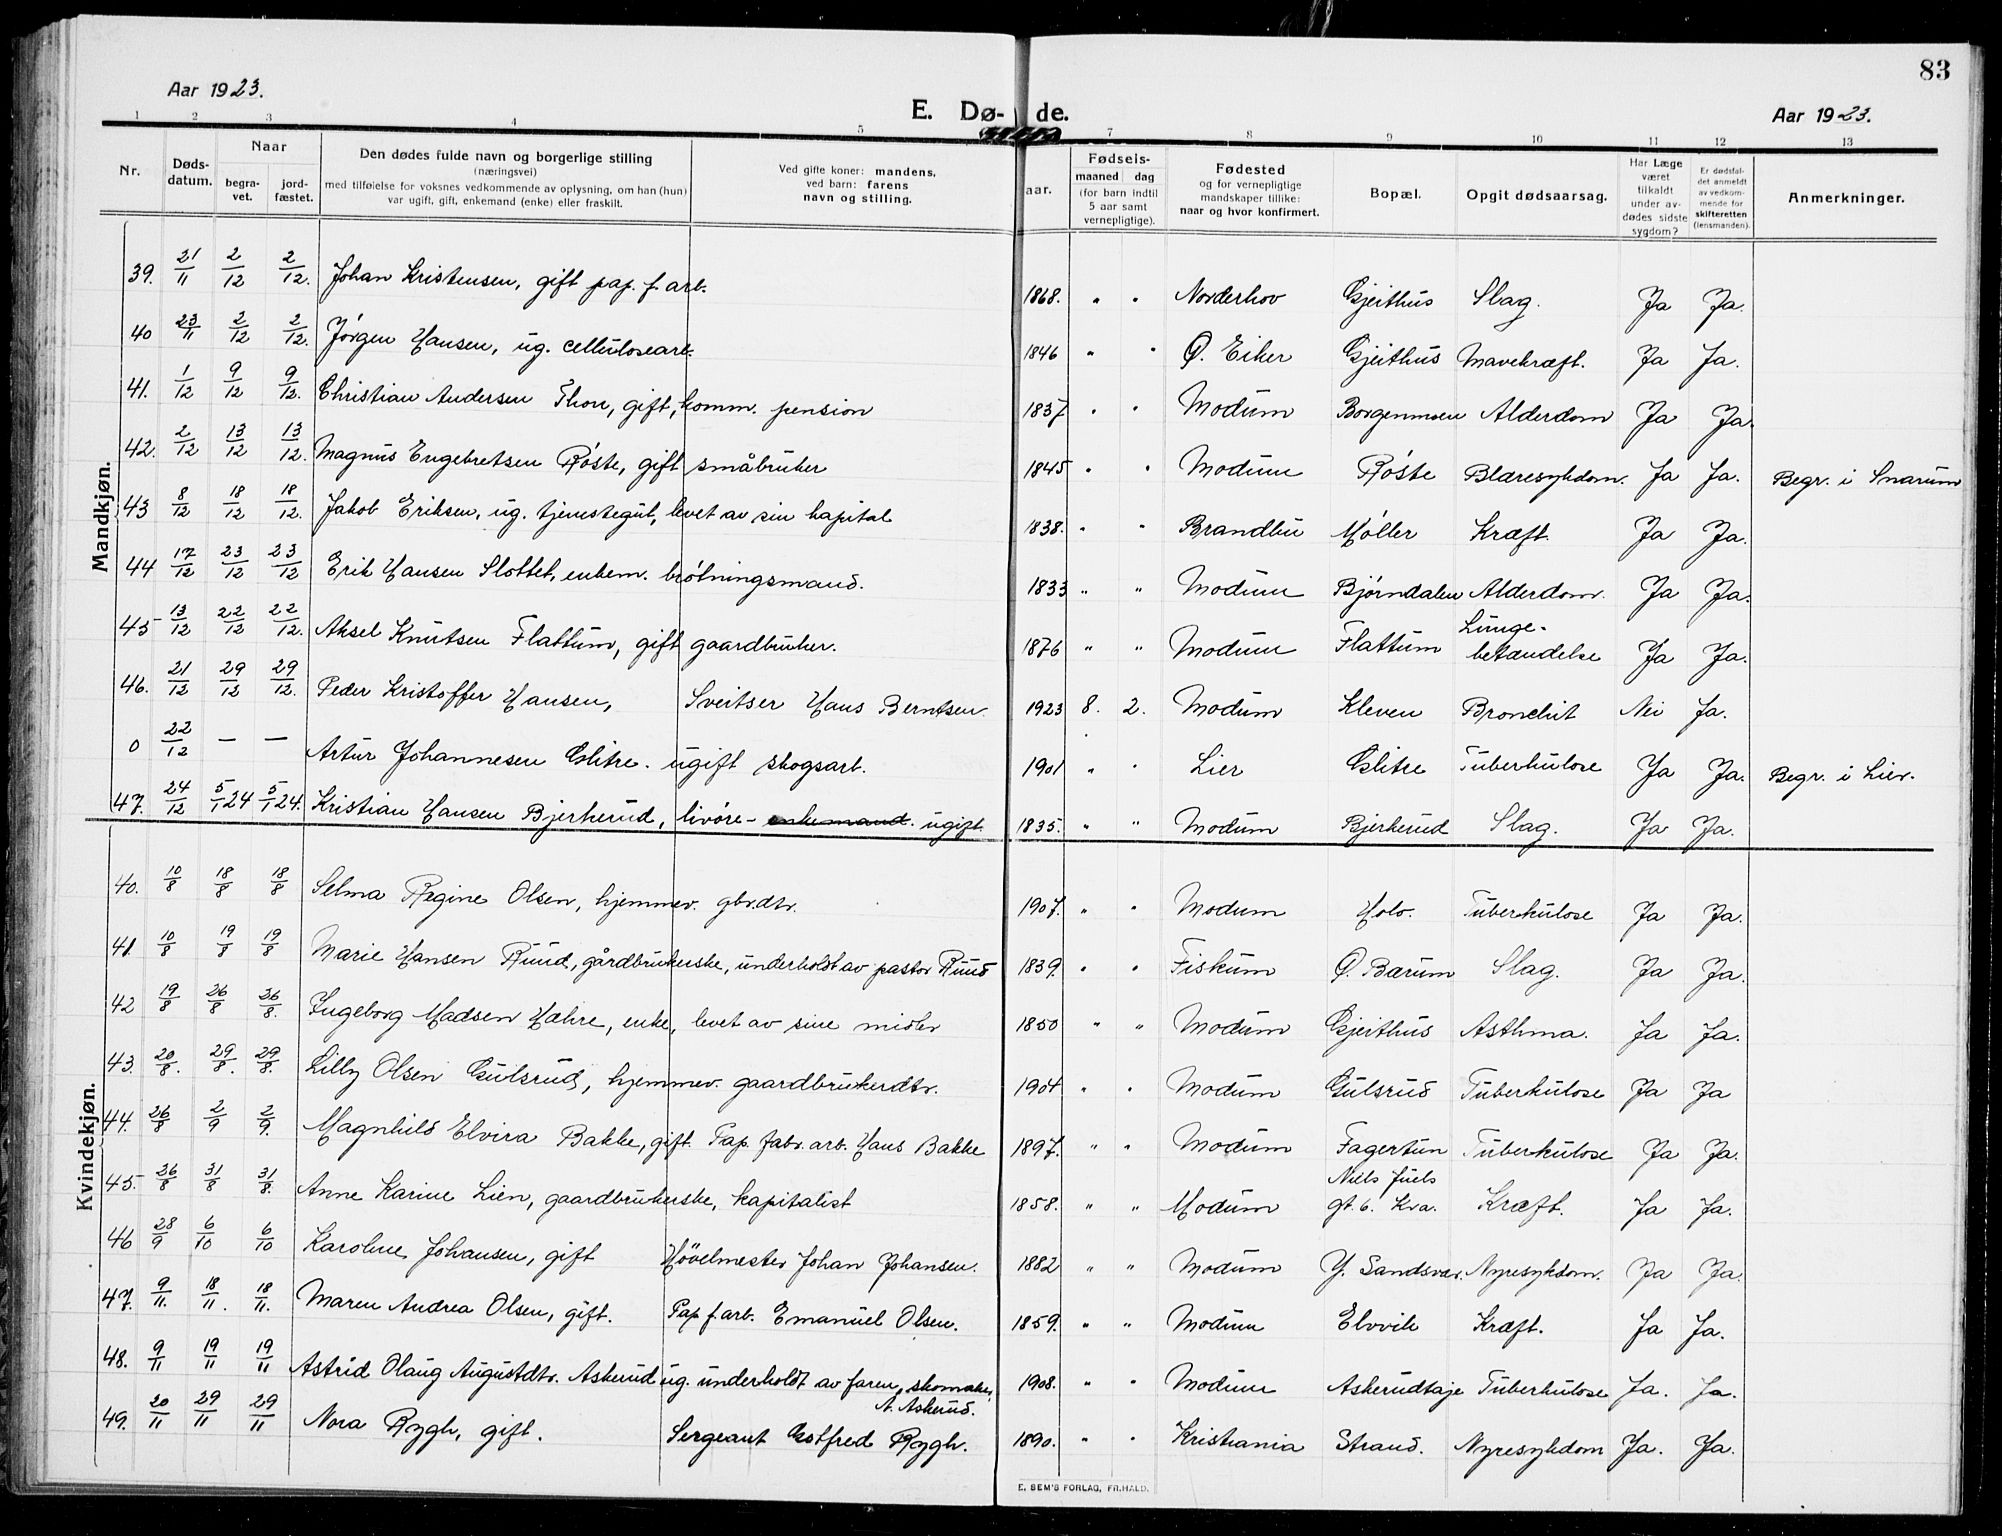 83
Aar 1923.
E. Dø- de.
Aar 1923.
1 2 3 4 5 7 8 9 10 11 12 13
Nr. Døds-datum. Naar begra-vet. jord-fæstet. Den dødes fulde navn og borgerlige stilling (næringsvei) med tilføielse for voksnes vedkommende av oplysning, om han (hun) var ugift, gift, enkemand (enke) eller fraskilt. Ved gifte koner: mandens, ved barn: farens navn og stilling. aar. Fødsels- maaned dag (for barn indtil 5 aar samt vernepligtige). Fødested og for vernepligtige mandskaper tillike: naar og hvor konfirmert. Bopæl. Opgit dødsaarsag. Har Læge været tilkaldt under av-dødes sidste sygdom? Er dødsfal-det anmeldt av vedkom-mende for skifteretten (lensmanden). Anmerkninger.
Mandkjøn.
39. 21/11 2/12 2/12. Johan Kristensen, gift pap. f. arb. 1868. " " Norderhov Gjeithus Slag. Ja Ja.
40 23/11 2/12 2/12. Jørgen Hansen, ug. cellulosearb. 1846 " " Ø. Eiker Gjeithus Mavekræft. Ja Ja.
41. 1/12 9/12 9/12. Christian Andersen Thon, gift, komm. pension 1837 " " Modum Borgenmoen Alderdom Ja Ja.
42. 2/12 13/12 13/12. Magnus Engebretsen Røste, gift småbruker 1845 " " Modum Røste Blæresykdom. Ja Ja. Begr. i Snarum
43 8/12 18/12 18/12. Jakob Eriksen, ug. tjenestegut, levet av sin kapital 1838. " " Brandbu Møller Kræft. Ja Ja.
44 17/12 23/12 23/12 Erik Hansen Slottet, enkem. brøtningsmand. 1833 " " Modum Bjørndalen Alderdom. Ja Ja.
45 13/12 22/12 22/12. Aksel Knutsen Flattum, gift gaardbruker. 1876 " " Modum Flattum Lunge-betændelse Ja Ja.
46. 21/12 29/12 29/12. Peder Kristoffer Hansen, Sveitser Hans Berntsen. 1923 8. 2. Modum Kleven Bronchit Nei Ja.
0 22/12 — — Artur Johannesen Glitre. ugift skogsarb. 1901 " " Lier Glitre Tuberkulose Ja Ja. Begr. i Lier.
47. 24/12 5/1 24 5/1 24. Kristian Hansen Bjerkerud, livøre- enkemand. ugift. 1835. " " Modum Bjerkerud Slag. Ja Ja.
Kvindekjøn.
40. 10/8 18/8 18/8 Selma Regine Olsen, hjemmev. gbr.dtr. 1907. " " Modum Holo. Tuberkulose Ja Ja.
41. 10/8 19/8 19/8 Marie Hansen Ruud, gårdbrukerske, underholdt av pastor Ruud 1839. " " Fiskum Ø. Bærum Slag. Ja Ja.
42 19/8 26/8 26/8. Ingeborg Madsen Mæhre, enke, levet av sine midler 1850 " " Modum Gjeithus Asthma. Ja Ja.
43. 20/8. 29/8. 29/8. Lilly Olsen Gulsrud, hjemmev. gaardbrukerdtr. 1904 " " Modum Gulsrud Tuberkulose Ja Ja
44. 26/8 2/9 2/9. Magnhild Elvira Bakke, gift. Pap. fabr. arb. Hans Bakke 1897. " " Modum Fagertun Tuberkulose Ja Ja.
45. 26/8 31/8 31/8. Anne Karine Lien, gaardbrukerske, kapitalist 1858. " " Modum Niels Juels gt. 6. Kra. Kræft. Ja Ja.
46 28/9 6/10 6/10 Karoline Johansen, gift Høvelmester Johan Johansen. 1882 " " Modum Y. Sandsvær. Nyresykdom. Ja Ja.
47. 9/11. 18/11. 18/11. Maren Andrea Olsen, gift. Pap. f. arb. Emanuel Olsen. 1859. " " Modum Elvvik Kræft. Ja Ja.
48. 9/11 19/11 19/11 Astrid Olaug Augustdtr. Askerud ug. underholdt av faren, skomaker A. Askerud. 1908. " " Modum Askerudtaje Tuberkulose Ja. Ja.
49. 20/11 29/11 29/11 Nora Rygh, gift. Sergeant Gotfred Rygh. 1890. " " Kristiania Strand. Nyresykdom Ja. Ja.
E. SEM'S FORLAG, FR.HALD.